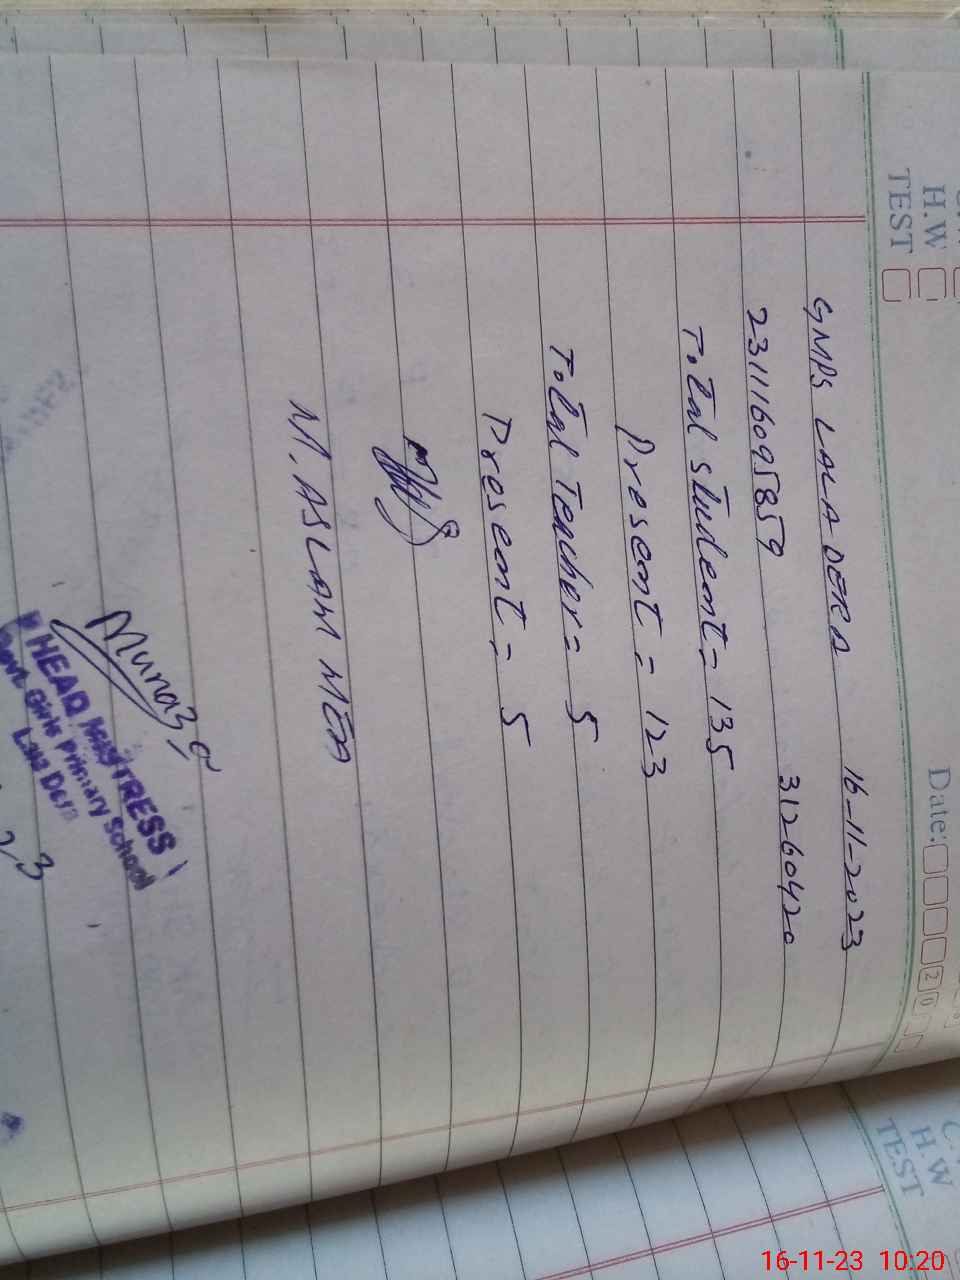 H.W
TEST
Date:
2 0
GMPS LALA DERA 16-11-2023
2311160958​59 31260420
Total student = 135
Present = 123
Total Teacher = 5
Present = 5
M. ASLAM MEA
Munaza
HEAD MISTRESS
Govt. Girls Primary School
Lala Dera
H.W
TEST
16-11-23 10:20